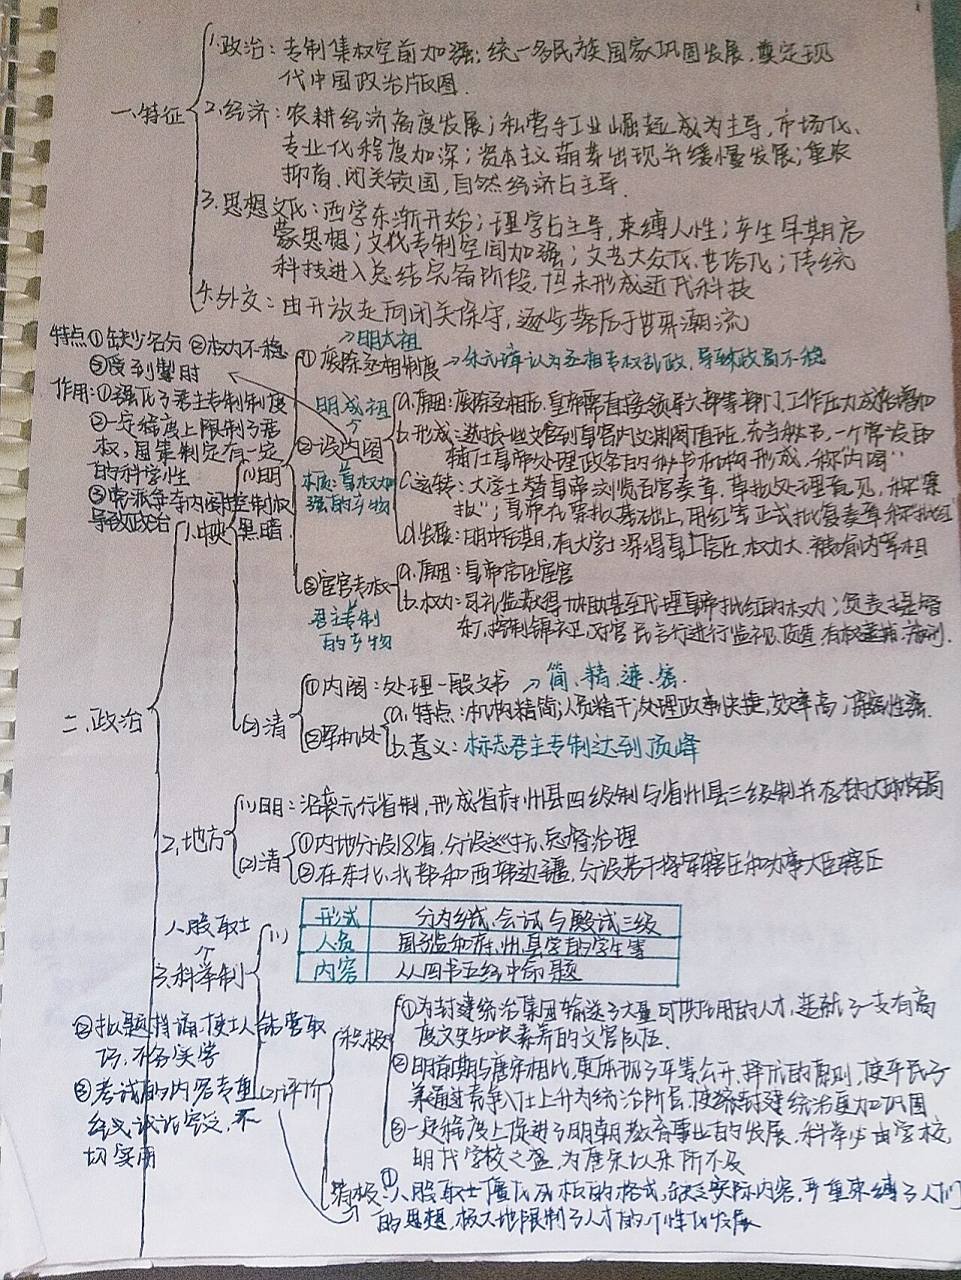 一、特征
1.政治：专制集权空前加强；统一多民族国家巩固发展，奠定现
代中国政治版图．
2.经济：农耕经济高度发展；私营手工业崛起成为主导，市场化、
专业化程度加深；资本主义萌芽出现并缓慢发展；重农
抑商、闭关锁国，自然经济占主导．
3.思想文化：西学东渐开始；理学占主导，束缚人性；产生早期启
蒙思想；文化专制空间加强；文艺大众化、世俗化；传统
科技进入总结完备阶段，但未形成近代科技
4.外交：由开放走向闭关保守，逐步落后于世界潮流
二、政治
1.中央
(1)明
→明太祖
①废除丞相制度→朱元璋认为丞相专权乱政，导致政局不稳
明成祖
②设内阁
本质：君权加
强的产物
特点①缺少名分 ②权力不稳
③受到掣肘
作用：①强化了君主专制制度
②一定程度上限制了君
权，国策制定有一定
的科学性
③党派争夺内阁控制权
导致政治
黑暗．
a.原因：废除丞相后，皇帝需直接领导六部等部门，工作压力成倍增加
b.形成：选拔一些文官到皇宫内文渊阁值班，充当秘书，一个常设的
辅佐皇帝处理政务的秘书机构形成，称“内阁”
c.运转：大学士替皇帝浏览百官奏章，草拟处理意见，称“票
拟”；皇帝在票拟基础上，用红笔正式批复奏章称批红
d.发展：明中后期，有大学士深得皇上信任，权力大，被喻为宰相
③宦官专权
君主专制
的产物
a.原因：皇帝信任宦官
b.权力：司礼监获得协助甚至代理皇帝批红的权力；负责提督
东厂，控制锦衣卫，对官民言行进行监视、侦查，有权逮捕、
(2)清
①内阁：处理一般文书 →简、精、速、密．
②军机处
a.特点：机构精简；人员精干；处理政事快捷，效率高；保密性强．
b.意义：标志君主专制达到顶峰
2.地方
(1)明：沿袭元行省制，形成省府州县四级制与省州县三级制并存的大体格局
(2)清
①内地分设18省，分设巡抚、总督治理
②在东北、北部和西部边疆，分设若干将军辖区和办事大臣辖区
八股取士
3.科举制
(1)
形式 分为乡试、会试与殿试三级
人员 国子监和府、州、县学的学生等
内容 从四书五经中命题
(2)评价
积极
①为封建统治集团输送了大量可供任用的人才，造就了一支有高
度文史知识素养的文官队伍．
②明前期与唐宋相比，更体现了平等、公开、择优的原则，使平民子
弟通过竞争入仕上升为统治阶层，使封建统治更加巩固
③一定程度上促进了明朝教育事业的发展，科举必由学校，
明代学校之盛，为唐宋以来所不及
消极：①八股取士僵化死板的格式，缺乏实际内容，严重束缚了人们
的思想，极大地限制了人才的个性化发展
②拟题揣诵，使士人钻营取
巧，不务实学
③考试的内容专重
经义，试论空泛，不
切实用